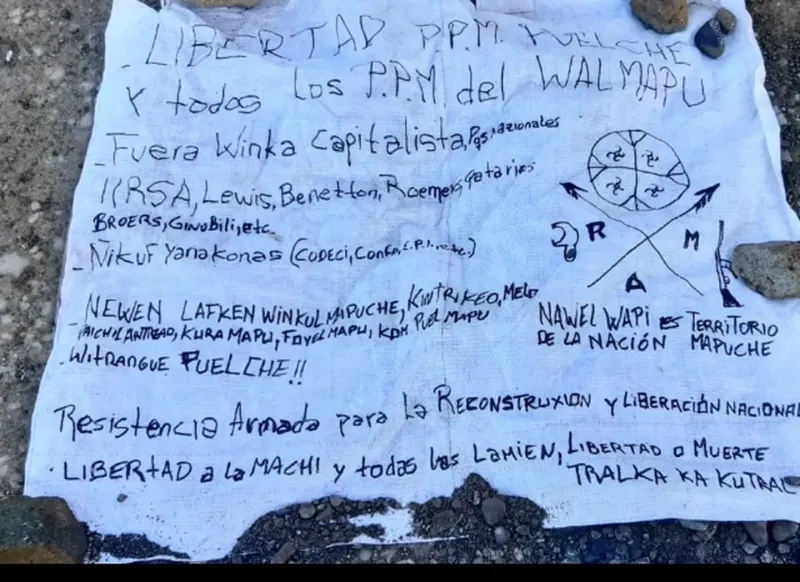 - LIBERTAD P.P.M. PUELCHE
Y todos los P.P.M del WALMAPU
- Fuera Winka Capitalista,
IIRSA, Lewis, Benetton, Roemers, Qataries
BROERS, GINOBILI, etc.
- Ñikuf Yanakonas (CODECI, C.P.I., etc.)
R
M
A
- NEWEN LAFKEN WINKUL MAPUCHE, KINTRIKEO, MELO
KURA MAPU, FOYEL MAPU, KDH PUEL MAPU
- WITRANGUE PUELCHE!!
NAWEL WAPI ES TERRITORIO
DE LA NACIÓN MAPUCHE
Resistencia Armada para la RECONSTRUXION y LIBERACIÓN NACIONAL
· LIBERTAD a la MACHI y todas las Lamien, LIBERTAD O MUERTE
TRALKA KA KUTRAL